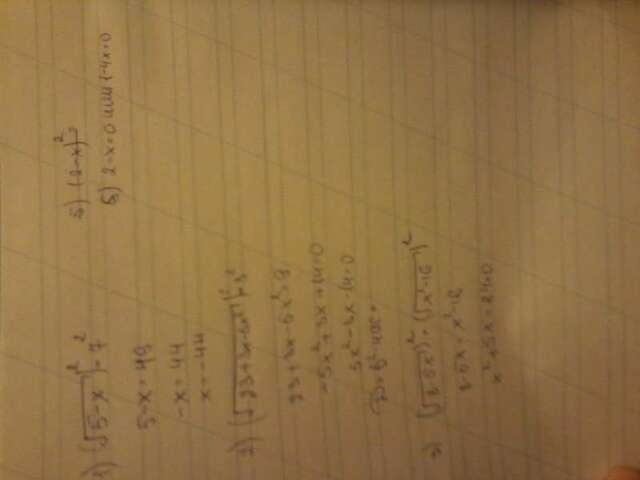 1) (√5-x)² = 7²
5-x = 49
-x = 44
x = -44
2) (√23+3x-5x²)² = 3²
23+3x-5x² = 9
-5x²+3x+14=0
5x²-3x-14=0
D = b²-4ac =
3) (√8-5x)² = (√x²-16)²
8-5x = x²-16
x²+5x-24=0
5) (2-x)²
6) 2-x=0 или 1-4x=0